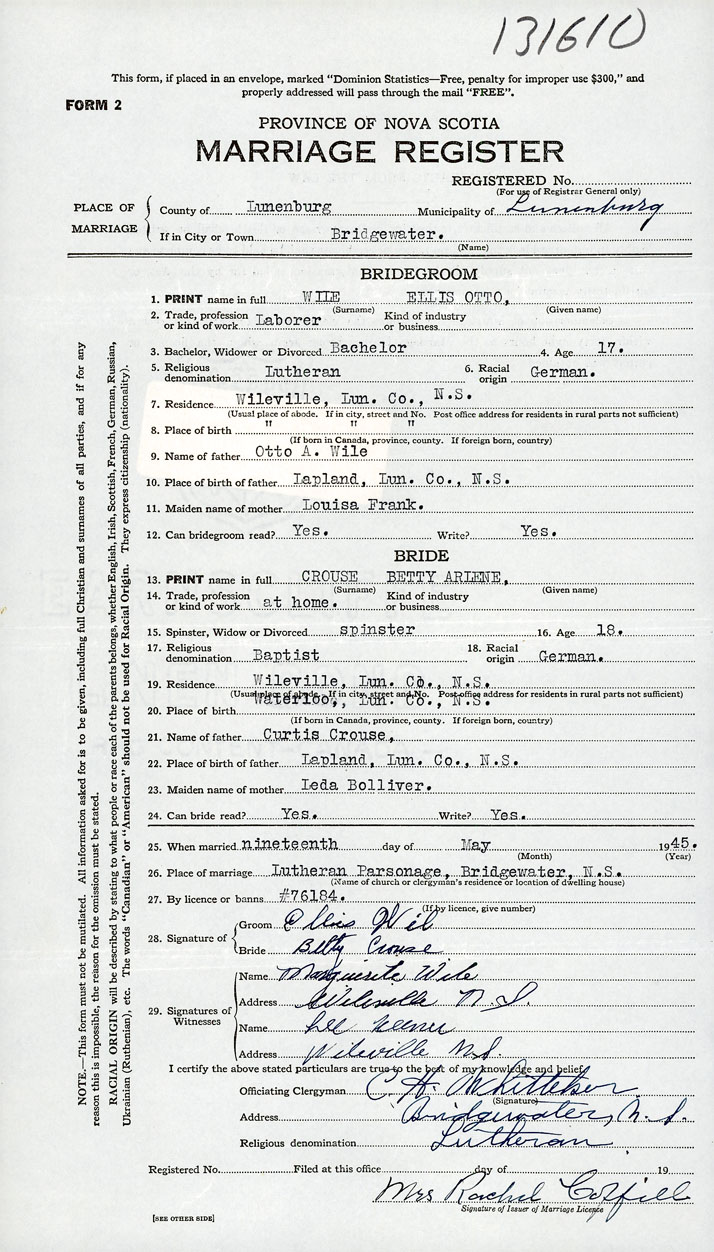 131610
This form, if placed in an envelope, marked "Dominion Statistics—Free, penalty for improper use $300," and
properly addressed will pass through the mail "FREE".
FORM 2
PROVINCE OF NOVA SCOTIA
MARRIAGE REGISTER
REGISTERED No.
(For use of Registrar General only)
PLACE OF MARRIAGE
County of Lunenburg Municipality of Lunenburg
If in City or Town Bridgewater.
(Name)
BRIDEGROOM
1. PRINT name in full WILE ELLIS OTTO,
(Surname) (Given name)
2. Trade, profession or kind of work Laborer Kind of industry or business
3. Bachelor, Widower or Divorced Bachelor 4. Age 17.
5. Religious denomination Lutheran 6. Racial origin German.
7. Residence Wileville, Lun. Co., N.S.
(Usual place of abode. If in city, street and No. Post office address for residents in rural parts not sufficient)
8. Place of birth " " "
(If born in Canada, province, county. If foreign born, country)
9. Name of father Otto A. Wile
10. Place of birth of father Lapland, Lun. Co., N.S.
11. Maiden name of mother Louisa Frank.
12. Can bridegroom read? Yes. Write? Yes.
BRIDE
13. PRINT name in full CROUSE BETTY ARLENE,
(Surname) (Given name)
14. Trade, profession or kind of work at home. Kind of industry or business
15. Spinster, Widow or Divorced spinster 16. Age 18.
17. Religious denomination Baptist 18. Racial origin German.
19. Residence Wileville, Lun. Co., N.S.
(Usual place of abode. If in city, street and No. Post office address for residents in rural parts not sufficient)
20. Place of birth Waterloo, Lun. Co., N.S.
(If born in Canada, province, county. If foreign born, country)
21. Name of father Curtis Crouse,
22. Place of birth of father Lapland, Lun. Co., N.S.
23. Maiden name of mother Leda Bolliver.
24. Can bride read? Yes. Write? Yes.
25. When married nineteenth day of May 1945.
(Month) (Year)
26. Place of marriage Lutheran Parsonage, Bridgewater, N.S.
(Name of church or clergyman's residence or location of dwelling house)
27. By licence or banns #76184.
(If by licence, give number)
28. Signature of
Groom Ellis Wil
Bride Betty Crouse
29. Signatures of Witnesses
Name Marguerite Wile
Address Wileville N.S.
Name
Address Wileville N.S.
I certify the above stated particulars are true to the best of my knowledge and belief.
Officiating Clergyman C. H. Whitteker
(Signature)
Address Bridgewater, N.S.
Religious denomination Lutheran
Registered No. Filed at this office day of 19
Mrs Rachel
Signature of Issuer of Marriage Licence
[SEE OTHER SIDE]
NOTE.—This form must not be mutilated. All information asked for is to be given, including full Christian and surnames of all parties, and if for any
reason this is impossible, the reason for the omission must be stated.
RACIAL ORIGIN will be described by stating to what people or race each of the parents belongs, whether English, Irish, Scottish, French, German, Russian,
Ukrainian (Ruthenian), etc. The words "Canadian" or "American" should not be used for Racial Origin. They express citizenship (nationality).